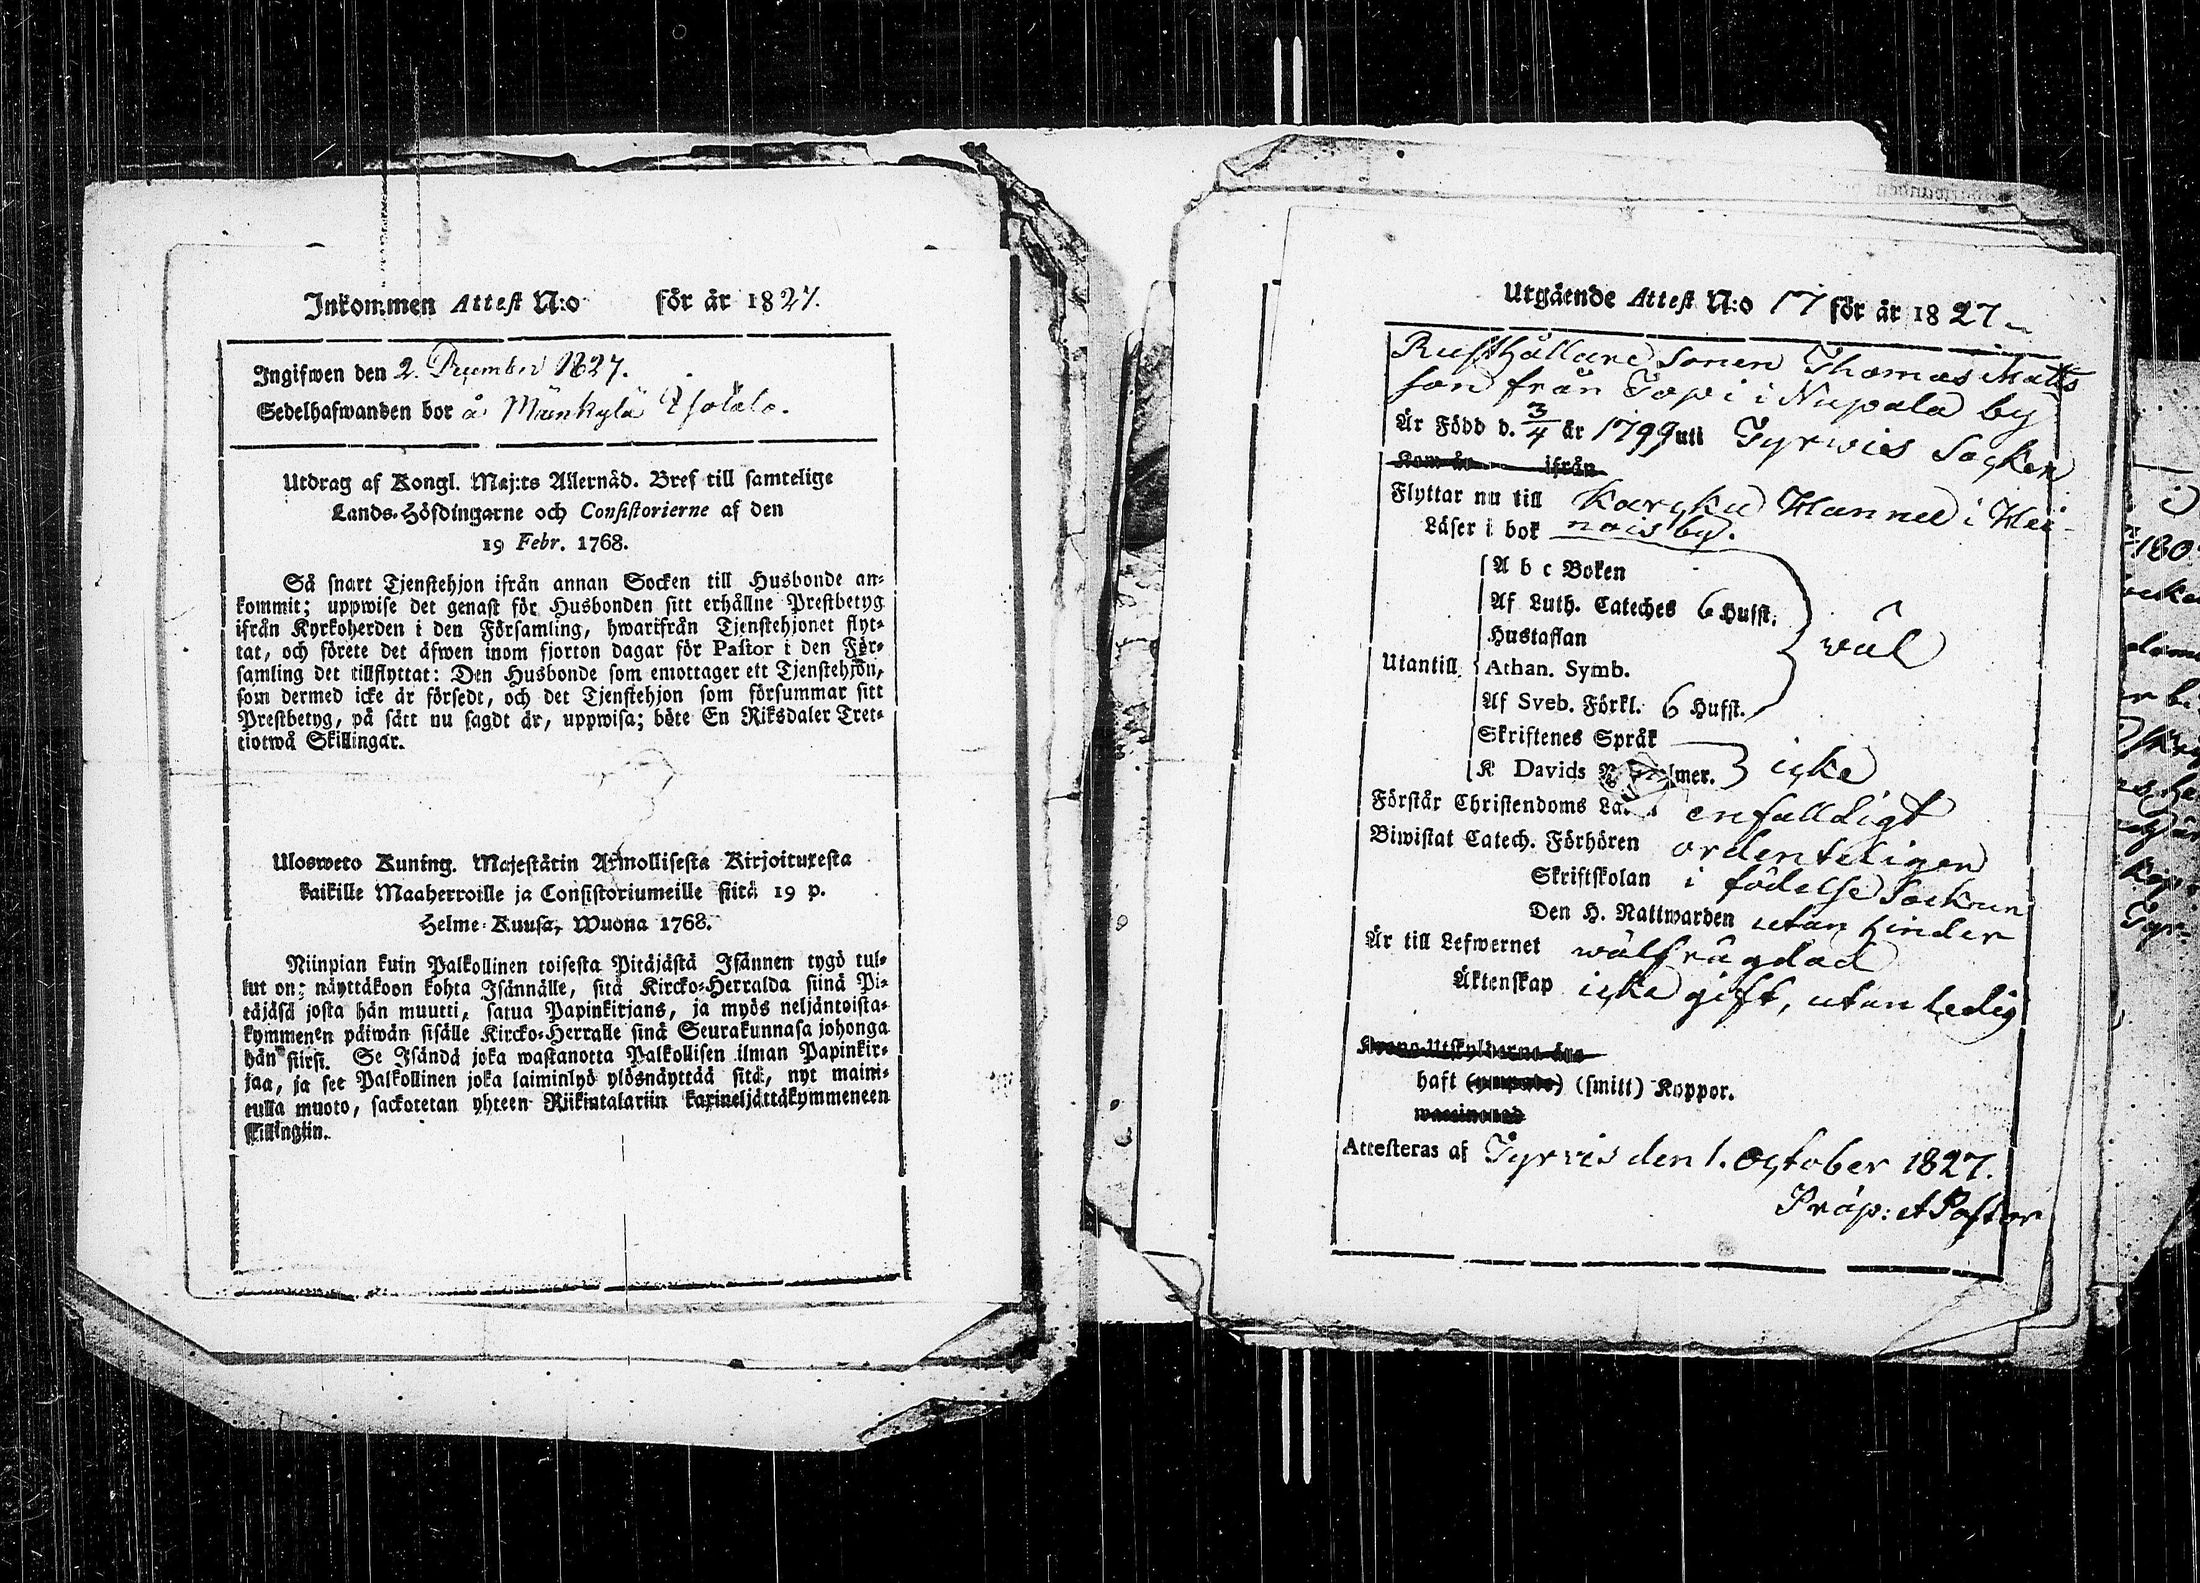 Inkommen Attest N:o för år 1827.
Ingifwen den 2. December 1827.
Sedelhafwanden bor å Männkylä Isotalo.
Utdrag af Kongl. Maj:ts Allernåd. Bref till samtelige
Lands-Höfdingarne och Consistorierne af den
19 Febr. 1768.
Så snart Tjenstehjon ifrån annan Socken till Husbonde an-
kommit; uppwise det genast för Husbonden sitt erhållne Prestbetyg
ifrån Kyrkoherden i den Församling, hwarifrån Tjenstehjonet flyt-
tat, och förete det äfwen inom fjorton dagar för Pastor i den För-
samling det tillflyttat: Den Husbonde som emottager ett Tjenstehjon,
som dermed icke är försedt, och det Tjenstehjon som försummar sitt
Prestbetyg, på sätt nu sagdt är, uppwisa; böte En Riksdaler Tret-
tiotwå Skillingar.
Ulosweto Kuning. Majestätin Armollisesta Kirjoituresta
kaikille Maaherroille ja Consistoriumeille siitä 19 p.
Helme-Kuusa, Wuona 1768.
Niinpian kuin Palkollinen toisesta Pitäjästä Isännen tygö tul-
lut on; näyttäkoon kohta Isännälle, sitä Kircko-Herralda siinä Pi-
täjäsä josta hän muutti, satua Papinkirjans, ja myös neljäntoista-
kymmenen päiwän sisälle Kircko-Herralle sinä Seurakunnasa johonga
hän siirsi. Se Isändä joka wastanotta Palkollisen ilman Papinkir-
jaa, ja see Palkollinen joka laiminlyö ylösnäyttää sitä, nyt maini-
tulla muoto, sackotetan yhteen Riikintalariin karineljättäkymmeneen
skillingiin.
Utgående Attest N:o 17 för år 1827
Rusthållare sonen Thomas Matts
son från Topi i Nupala by
Är Född d. 3/4 år 1799 uti Tyrwis Socken
Kom år ifrån
Flyttar nu till Karcku Hannel i Hei-
Läser i bok nois by.
A b c Boken
Af Luth. Cateches 6 Hufst.
Hustaflan
wäl
Utantill Athan. Symb.
Af Sveb. Förkl. 6 Hufst.
Skriftenes Språk
K Davids Psalmer. icke
Förstår Christendoms La. enfalldigt
Biwistat Catech. Förhören ordenteligen
Skriftskolan i födelse Socknen
Den H. Nattwarden utan hinder
Är till Lefwernet wälfrägdad
Äktenskap icke gift, utan ledig
Krono-Utskylderne äro
haft (smitt) Koppor.
waccinerad
Attesteras af Tyrvis den 1. October 1827.
Präp: et Pastor